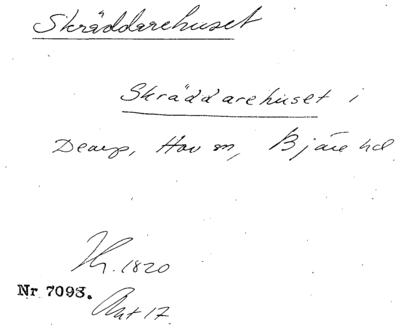 Skräddarehuset
Skräddarehuset i
Dearp, Hov sn, Bjäre hd
Kr. 1820
Nr 7093.
Ant 17